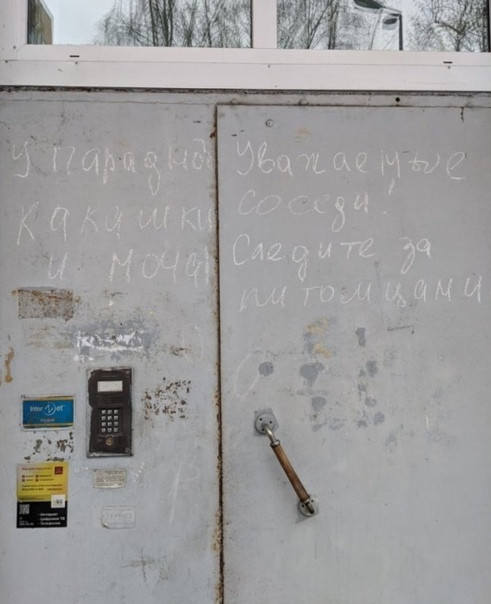 у парадной
какашки
и моча
Уважаемые
соседи!
Следите за
питомцами
Inter